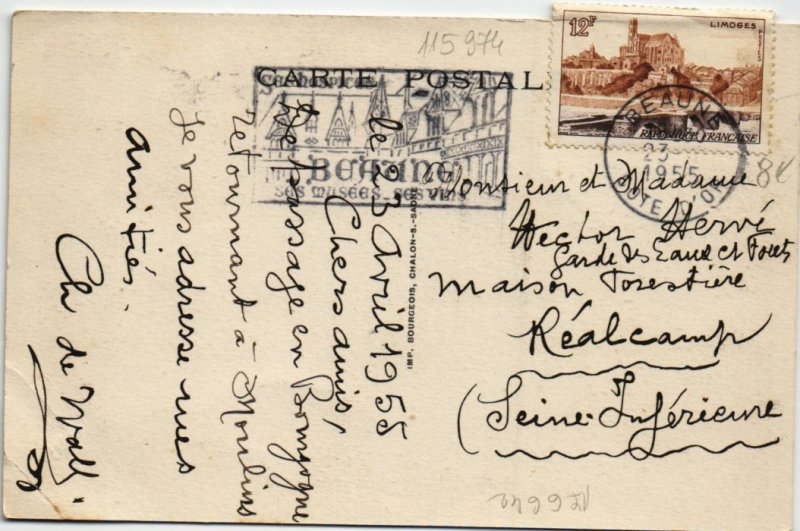 115974
CARTE POSTALE
12F
LIMOGES
POSTES
RÉPUBLIQUE FRANÇAISE
BEAUNE
23
1955
CÔTE D'OR
BEAUNE
SES MUSÉES - SES VINS
8€
Monsieur et Madame
Hector Hervé
Garde des Eaux et Forêts
Maison Forestière
Réalcamp
(Seine-Inférieure
IMP. BOURGEOIS, CHALON-S.-SAONE
le 23 avril 1955
Chers amis,
De passage en Bourgogne
retournant à Moulins
Je vous adresse mes
amitiés.
Ch de Wall